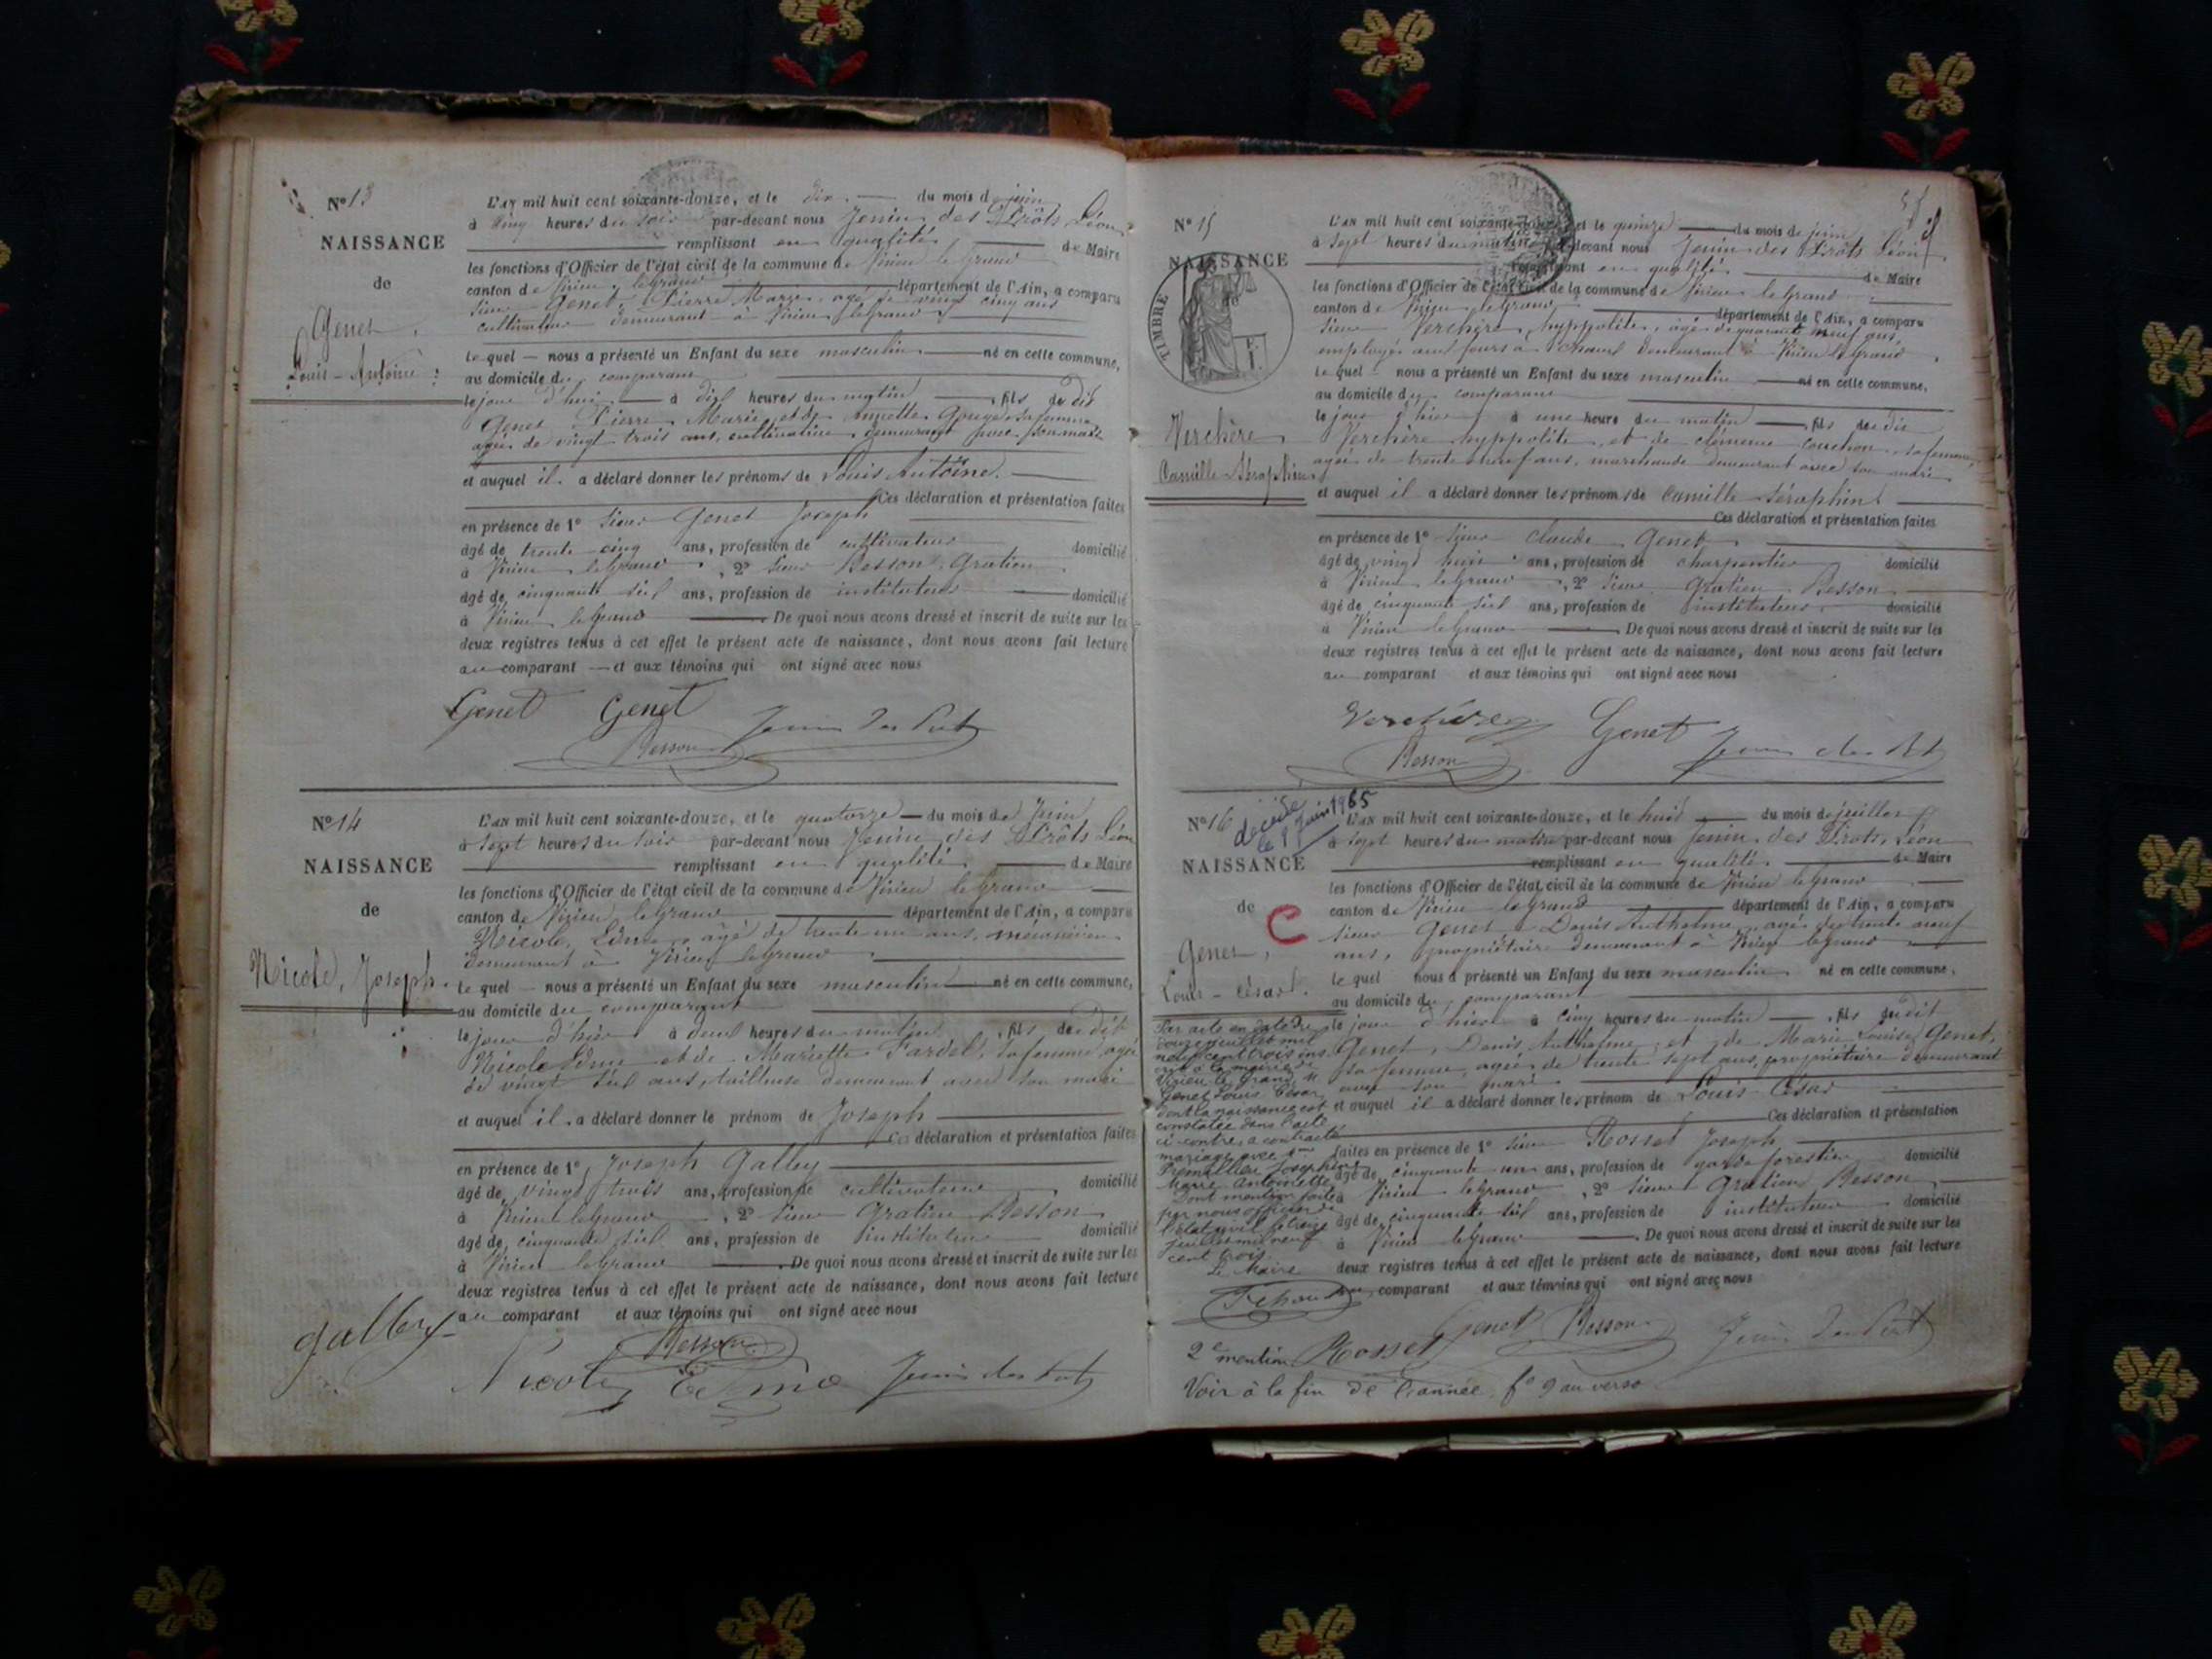 N° 13
NAISSANCE
de
Genet
Louis-Antoine
L'AN mil huit cent soixante-douze, et le dix du mois de juin
à cinq heures du soir par-devant nous Jenin des Prôts Léon
remplissant en qualité de Maire
les fonctions d'Officier de l'état civil de la commune de Virieu le Grand
canton de Virieu le Grand département de l'Ain, a comparu
sieur Genet, Pierre Marie, agé de vingt cinq ans
cultivateur demeurant à Virieu le Grand
Le quel nous a présenté un Enfant du sexe masculin né en cette commune,
au domicile du comparant
le jour d'hui à dix heures du matin, fils du dit
Genet Pierre Marie et de Annette sa femme
agée de vingt trois ans, cultivatrice demeurant avec son mari
et auquel il a déclaré donner les prénoms de Louis Antoine.
Ces déclaration et présentation faites
en présence de 1° sieur Genet Joseph
âgé de trente cinq ans, profession de cultivateur domicilié
à Virieu le Grand, 2° sieur Besson Gratien
âgé de cinquante six ans, profession de instituteur domicilié
à Virieu le Grand. De quoi nous avons dressé et inscrit de suite sur les
deux registres tenus à cet effet le présent acte de naissance, dont nous avons fait lecture
au comparant et aux témoins qui ont signé avec nous
Genet Genet
Besson Jenin des Prôts
N° 14
NAISSANCE
de
Nicole, Joseph
L'AN mil huit cent soixante-douze, et le quatorze du mois de Juin
à sept heures du soir par-devant nous Jenin des Prôts Léon
remplissant en qualité de Maire
les fonctions d'Officier de l'état civil de la commune de Virieu le Grand
canton de Virieu le Grand département de l'Ain, a comparu
Nicole, Edme, âgé de trente un ans, mécanicien
demeurant à Virieu le Grand
Le quel nous a présenté un Enfant du sexe masculin né en cette commune,
au domicile du comparant
le jour d'hier à deux heures du matin, fils du dit
Nicole Edme et de Mariette Fardel, sa femme, agée
de vingt six ans, tailleuse demeurant avec son mari
et auquel il a déclaré donner le prénom de Joseph
Ces déclaration et présentation faites
en présence de 1° Joseph Galley
âgé de vingt trois ans, profession de cultivateur domicilié
à Virieu le Grand, 2° sieur Gratien Besson
âgé de cinquante six ans, profession de instituteur domicilié
à Virieu le Grand. De quoi nous avons dressé et inscrit de suite sur les
deux registres tenus à cet effet le présent acte de naissance, dont nous avons fait lecture
au comparant et aux témoins qui ont signé avec nous
Galley Besson
Nicole Edme Jenin des Prôts
N° 15
NAISSANCE
de
TIMBRE
Verchère
Camille Séraphin
L'AN mil huit cent soixante-douze, et le quinze du mois de juin
à sept heures du matin par-devant nous Jenin des Prôts Léon
remplissant en qualité de Maire
les fonctions d'Officier de l'état civil de la commune de Virieu le Grand
canton de Virieu le Grand département de l'Ain, a comparu
sieur Verchère, hyppolite, agé de quarante neuf ans,
employé aux fours à chaux demeurant à Virieu le Grand
Le quel nous a présenté un Enfant du sexe masculin né en cette commune,
au domicile du comparant
le jour d'hier à une heure du matin, fils du dit
Verchère hyppolite, et de clémence couchon, sa femme,
agée de trente neuf ans, marchande demeurant avec son mari
et auquel il a déclaré donner les prénoms de Camille Séraphin
Ces déclaration et présentation faites
en présence de 1° sieur claude Genet
âgé de vingt huit ans, profession de charpentier domicilié
à Virieu le Grand, 2° sieur Gratien Besson
âgé de cinquante six ans, profession de instituteur domicilié
à Virieu le Grand. De quoi nous avons dressé et inscrit de suite sur les
deux registres tenus à cet effet le présent acte de naissance, dont nous avons fait lecture
au comparant et aux témoins qui ont signé avec nous
Verchère Genet
Besson Jenin des Prôts
N° 16
décédé
le Juin 1965
NAISSANCE
de
C
Genet,
Louis-César.
L'AN mil huit cent soixante-douze, et le huit du mois de juillet
à sept heures du matin par-devant nous Jenin des Prôts, Léon
remplissant en qualité de Maire
les fonctions d'Officier de l'état civil de la commune de Virieu le Grand
canton de Virieu le Grand département de l'Ain, a comparu
sieur Genet Denis Anthelme, agé de trente neuf
ans, propriétaire demeurant à Virieu le Grand
Le quel nous a présenté un Enfant du sexe masculin né en cette commune,
au domicile du comparant
le jour d'hier à cinq heures du matin, fils du dit
Genet, Denis Anthelme et de Marie Louise Genet,
sa femme, agée de trente sept ans, propriétaire demeurant
avec son mari
et auquel il a déclaré donner les prénom de Louis César
Ces déclaration et présentation
faites en présence de 1° sieur Rosset Joseph
âgé de cinquante un ans, profession de garde forestier domicilié
à Virieu le Grand, 2° sieur Gratien Besson
âgé de cinquante six ans, profession de instituteur domicilié
à Virieu le Grand. De quoi nous avons dressé et inscrit de suite sur les
deux registres tenus à cet effet le présent acte de naissance, dont nous avons fait lecture
au comparant et aux témoins qui ont signé avec nous
Par acte en date du
douze juillet mil
neuf cent trois ins
crit à la mairie de
Virieu-le-Grand, M
Genet Louis César
dont la naissance est
constatée dans l'acte
ci-contre, a contracté
mariage avec
Premillieu Josephine
Marie Antoinette
Dont mention faite
par nous officier de
l'état civil le treize
Juillet mil neuf
cent trois.
Le Maire
Genet Besson Jenin des Prôts
2e mention Rosset
Voir à la fin de l'année, f° 9 au verso